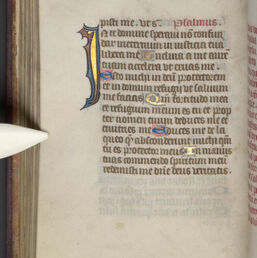 psalmus.
N te domine speravi non confun
dar in eternum in iusticia tua
libera me Inclina a me aure
tuam accelera ut eruas me
Esto michi in deum protectorem
et in domum refugii ut salvum
me facias Qm fortitudo mea
et refugium meum es tu et prop
ter nomen tuum deduces me et
enutries me Educes me de la
queo quem absconderunt michi qm
tu es protector meus In manus
tuas commendo spiritum meu
redemisti me dne deus veritatis